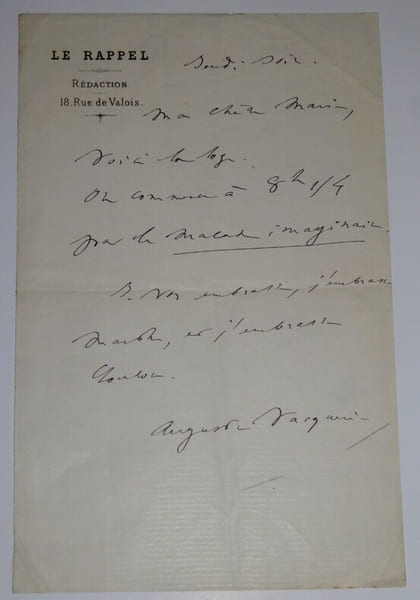 LE RAPPEL
RÉDACTION
18, Rue de Valois.
Jeudi soir.
Mon chère Marie,
Voici la loge.
On commence à 8h 1/4
par le Malade imaginaire.
Je vous embrasse, j'embrasse
Marthe, et j'embrasse
Loulou.
Auguste Vacquerie